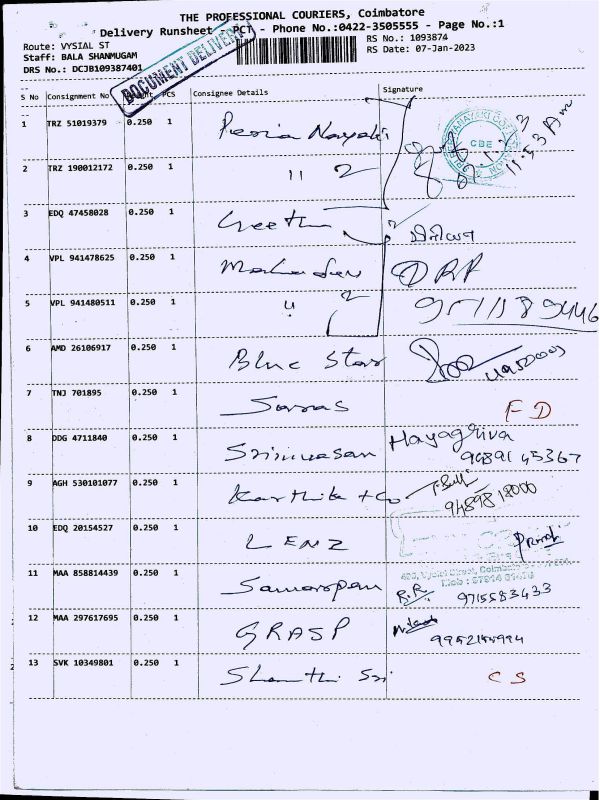 THE PROFESSIONAL COURIERS, Coimbatore
Delivery Runsheet - PCT - Phone No.:0422-3505555 - Page No.:1
Route: VYSIAL ST
RS No.: 1093874
Staff: BALA SHANMUGAM
RS Date: 07-Jan-2023
DRS No.: DCJB109387401
DOCUMENT DELIVERY
S No Consignment No PCS Consignee Details Signature
1 TRZ 51019379 0.250 1 Peria Nayaki
CBE
11.53 Am
2 TRZ 190012172 0.250 1 " 2
3 EDQ 47458028 0.250 1 Geetha
4 VPL 941478625 0.250 1 Mahadev
5 VPL 941480511 0.250 1 " 2
6 AMD 26106917 0.250 1 Blue Star
7 TNJ 701895 0.250 1 Saras FD
8 DDG 4711840 0.250 1 Srinivasan Hayagriva
9489145367
9 AGH 530101077 0.250 1 Karthik + Co
9489818000
10 EDQ 20154527 0.250 1 LENZ
11 MAA 858814439 0.250 1 R.R. 9715583433
12 MAA 297617695 0.250 1 GRASP
13 SVK 10349801 0.250 1 Shanthi Sri CS